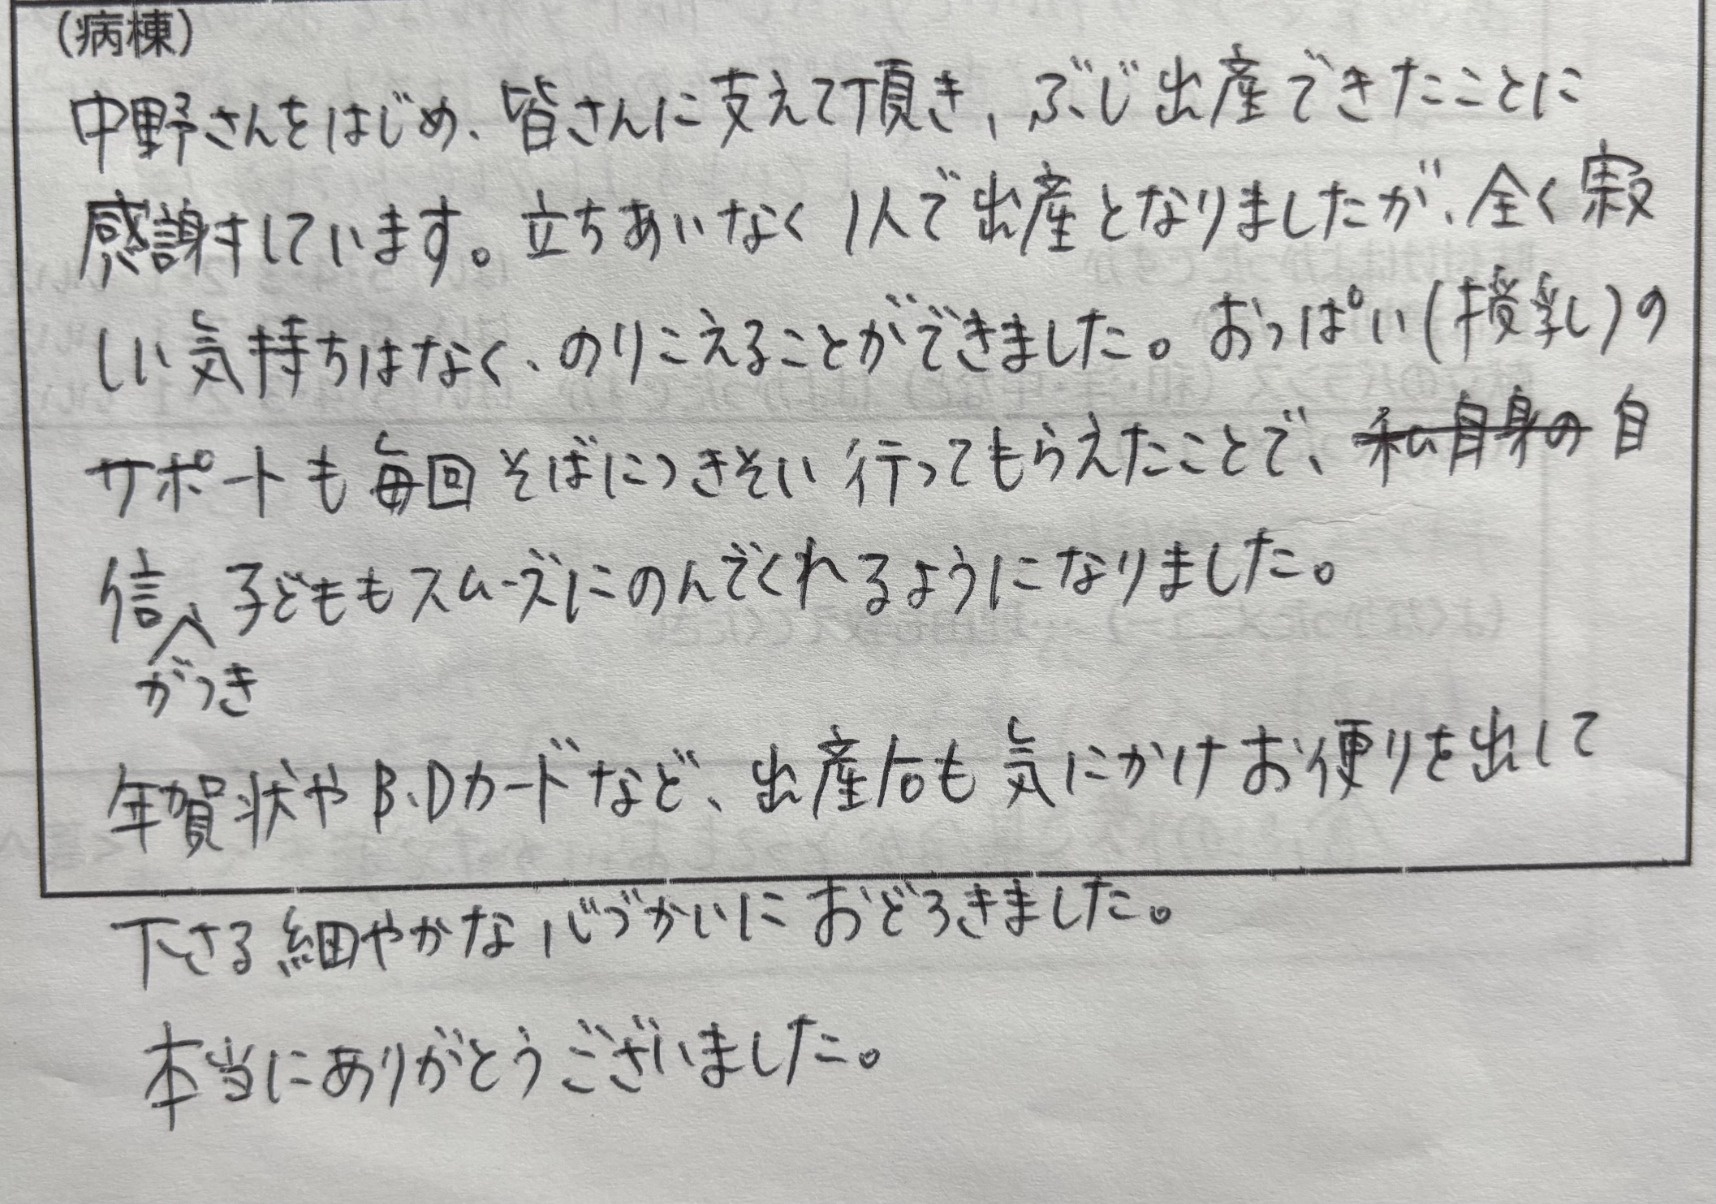 (病棟)
中野さんをはじめ、皆さんに支えて頂き、ぶじ出産できたことに
感謝しています。立ちあいなく1人で出産となりましたが、全く寂
しい気持ちはなく、のりこえることができました。おっぱい(授乳)の
サポートも毎回そばにつきそい行ってもらえたことで、私自身の自
信 子どももスムーズにのんでくれるようになりました。
がつき
年賀状やB.Dカードなど、出産后も気にかけお便りを出して
下さる細やかな心づかいにおどろきました。
本当にありがとうございました。